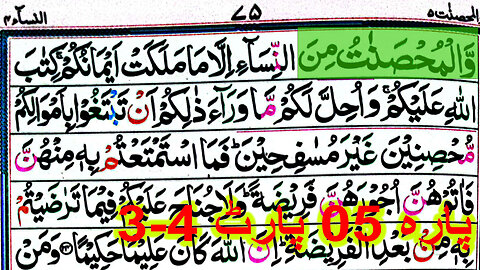 المحصنت ۵ ۷۵ النسآء ۴
وَّالْمُحْصَنٰتُ مِنَ النِّسَآءِ اِلَّا مَا مَلَكَتْ اَيْمَانُكُمْ كِتٰبَ
اللّٰهِ عَلَيْكُمْ وَاُحِلَّ لَكُمْ مَّا وَرَآءَ ذٰلِكُمْ اَنْ تَبْتَغُوْا بِاَمْوَالِكُمْ
مُّحْصِنِيْنَ غَيْرَ مُسٰفِحِيْنَ فَمَا اسْتَمْتَعْتُمْ بِهٖ مِنْهُنَّ
فَاٰتُوْهُنَّ اُجُوْرَهُنَّ فَرِيْضَةً وَلَا جُنَاحَ عَلَيْكُمْ فِيْمَا تَرٰضَيْتُمْ
پاره 05 پارٹ 4-3
بِهٖ مِنْ بَعْدِ الْفَرِيْضَةِ اِنَّ اللّٰهَ كَانَ عَلِيْمًا حَكِيْمًا وَمَنْ